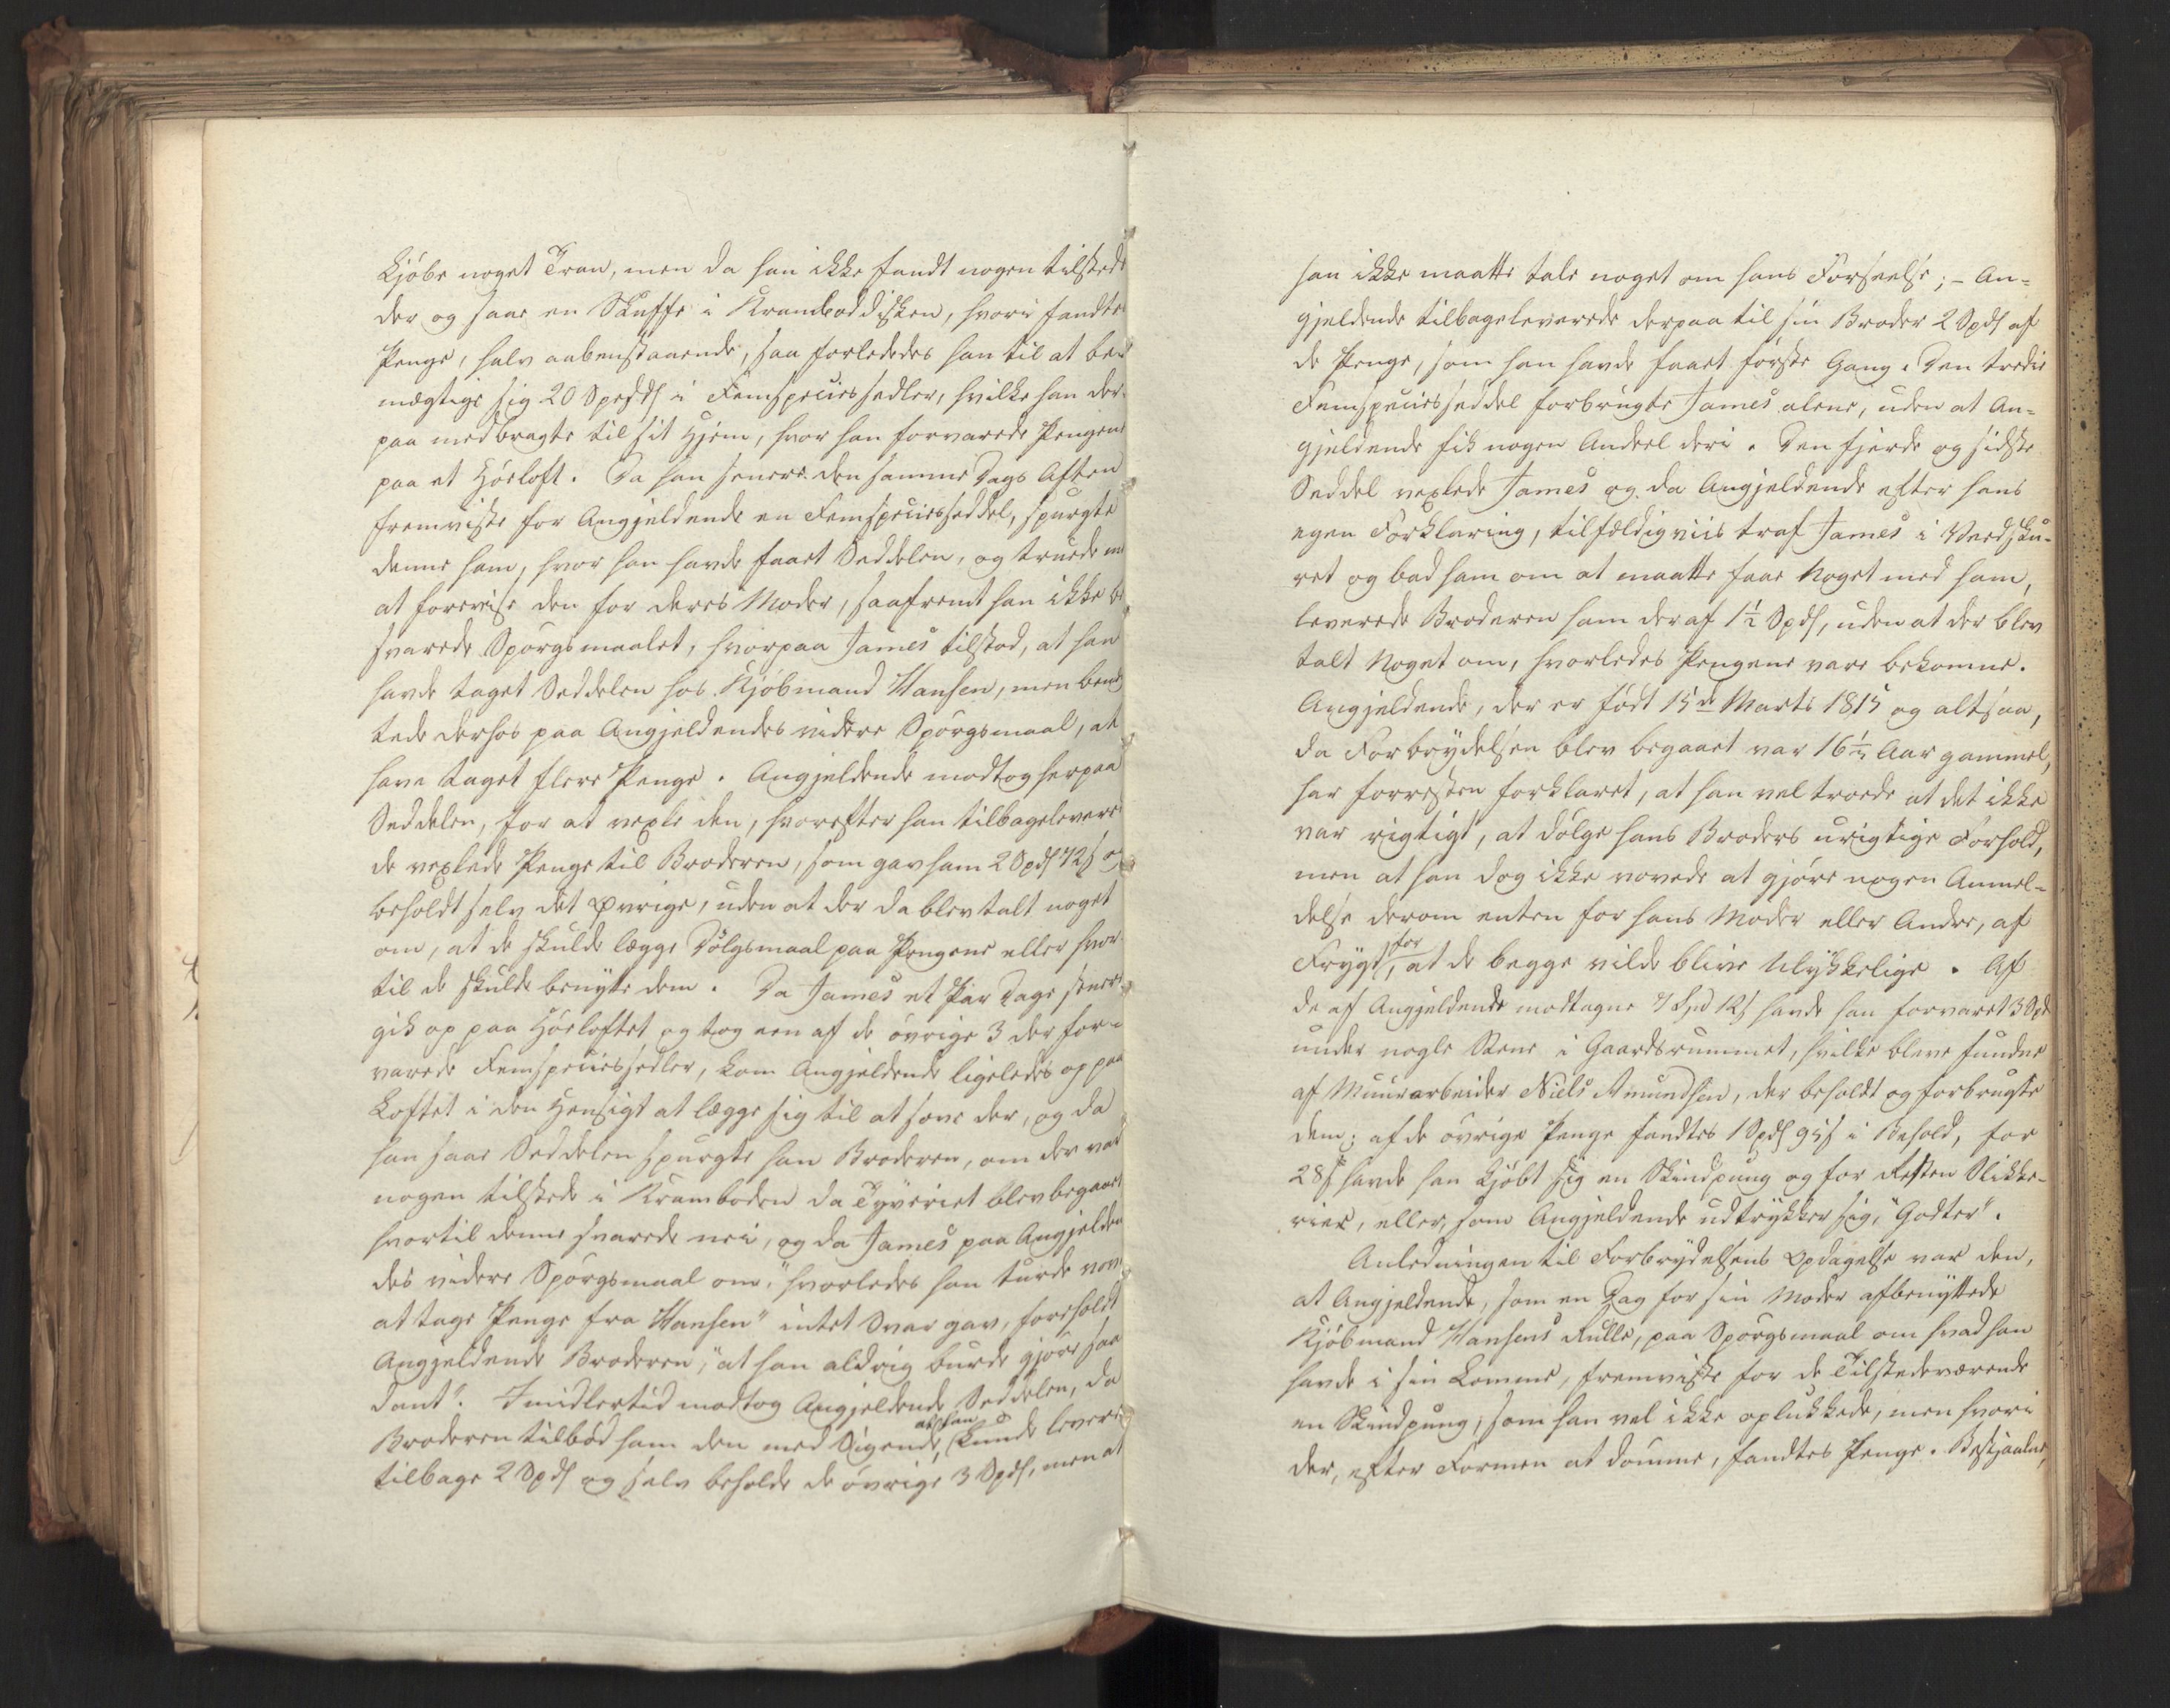 kjöbe noget Tran, men da han ikke fandt nogen tilstede
der og saae en Skuffe i Kramboddisken, hvori fandtes
Penge, halv aabenstaaende, saa forlededes han til at be-
mægtige sig 20 Spesds i Femspeciessedler, hvilke han der-
paa medbragte til sit Hjem, hvor han forvarede Pengene
paa et Höeloft. Da han senere den samme Dags Aften
fremviste for Angjeldende en Femspeciesseddel, spurgte
denne ham, hvor han havde faaet Seddelen, og truede med
at forevise den for deres Moder, saafremt han ikke be
svarede Spörgsmaalet, hvorpaa James tilstod, at han
havde taget Seddelen hos Kjöbmand Hansen, men benæg
tede derhos paa Angjeldendes videre Spörgsmaal, at
have taget flere Penge. Angjeldende modtog herpaa
Seddelen, for at vexle den, hvorefter han tilbageleverede
de vexlede Penge til Broderen, som gav ham 2 Spds 72 s og
beholdt selv det Øvrige, uden at der da blev talt noget
om, at de skulde lægge Dölgsmaal paa Pengene eller hvor-
til de skulde benytte dem. Da James et Par Dage senere
gik op paa Höeloftet og tog een af de övrige 3 der for-
varede Femspeciessedler, kom Angjeldende ligeledes op paa
Loftet i den Hensigt at lægge sig til at sove der, og da
han saae Seddelen spurgte han Broderen, om der var
nogen tilstede i Kramboden da Tyveriet blev begaaet
hvortil denne svarede nei, og da James paa Angjelden
des videre Spörgsmaal om, "hvorledes han turde vove
at tage Penge fra Hansen" intet Svar gav, foreholdt
Angjeldende Broderen, "at han aldrig burde gjöre saa
dant". Imidlertid modtog Angjeldende Seddelen, da
Broderen tilböd ham den med Sigende, at han kunde levere
tilbage 2 Spds og selv beholde de övrige 3 Spds, men at
han ikke maatte tale noget om hans Forseelse; - An-
gjeldende tilbageleverede derpaa til sin Broder 2 Spds af
de Penge, som han havde faaet förste Gang. Den tredie
Femspeciesseddel forbrugte James alene, uden at An-
gjeldende fik nogen Andeel deri. Den fjerde og sidste
Seddel vexlede James og da Angjeldende efter hans
egen Forklaring, tilfældigviis traf James i Vedsku-
ret og bad ham om at maatte faae Noget med ham,
leverede Broderen ham deraf 1½ Spds, uden at der blev
talt Noget om, hvorledes Pengene vare bekomne.
Angjeldende, der er födt 15de Marts 1815 og altsaa,
da Forbrydelsen blev begaaet var 16½ Aar gammel,
har forresten forklaret, at han vel troede at det ikke
var rigtigt, at dölge hans Broders urigtige Forhold,
men at han dog ikke vovede at gjöre nogen Anmel-
delse derom enten for hans Moder eller Andre, af
Frygt for, at de begge vilde blive Ulykkelige. Af
de af Angjeldende modtagne 7 Spd 12 s havde han forvaret 3 Spd
under nogle Stene i Gaardsrummet, hvilke bleve fundne
af Muurarbeider Niels Amundsen, der beholdt og forbrugte
dem; af de övrige Penge fandtes 1 Spds 95 s i Behold, for
28 s havde han kjöbt sig en Skindpung og for Resten Slikke-
rier, eller, som Angjeldende udtrykker sig, "Godter".
Anledningen til Forbrydelsens Opdagelse var den,
at Angjeldende, som en Dag for sin Moder afbenyttede
Kjöbmand Hansens Rulle, paa Spörgsmaal om hvad han
havde i sin Lomme, fremviste for de Tilstedeværende
en Skindpung, som han vel ikke oplukkede, men hvori
der, efter Formen at dömme, fandtes Penge. Bestjaalne,